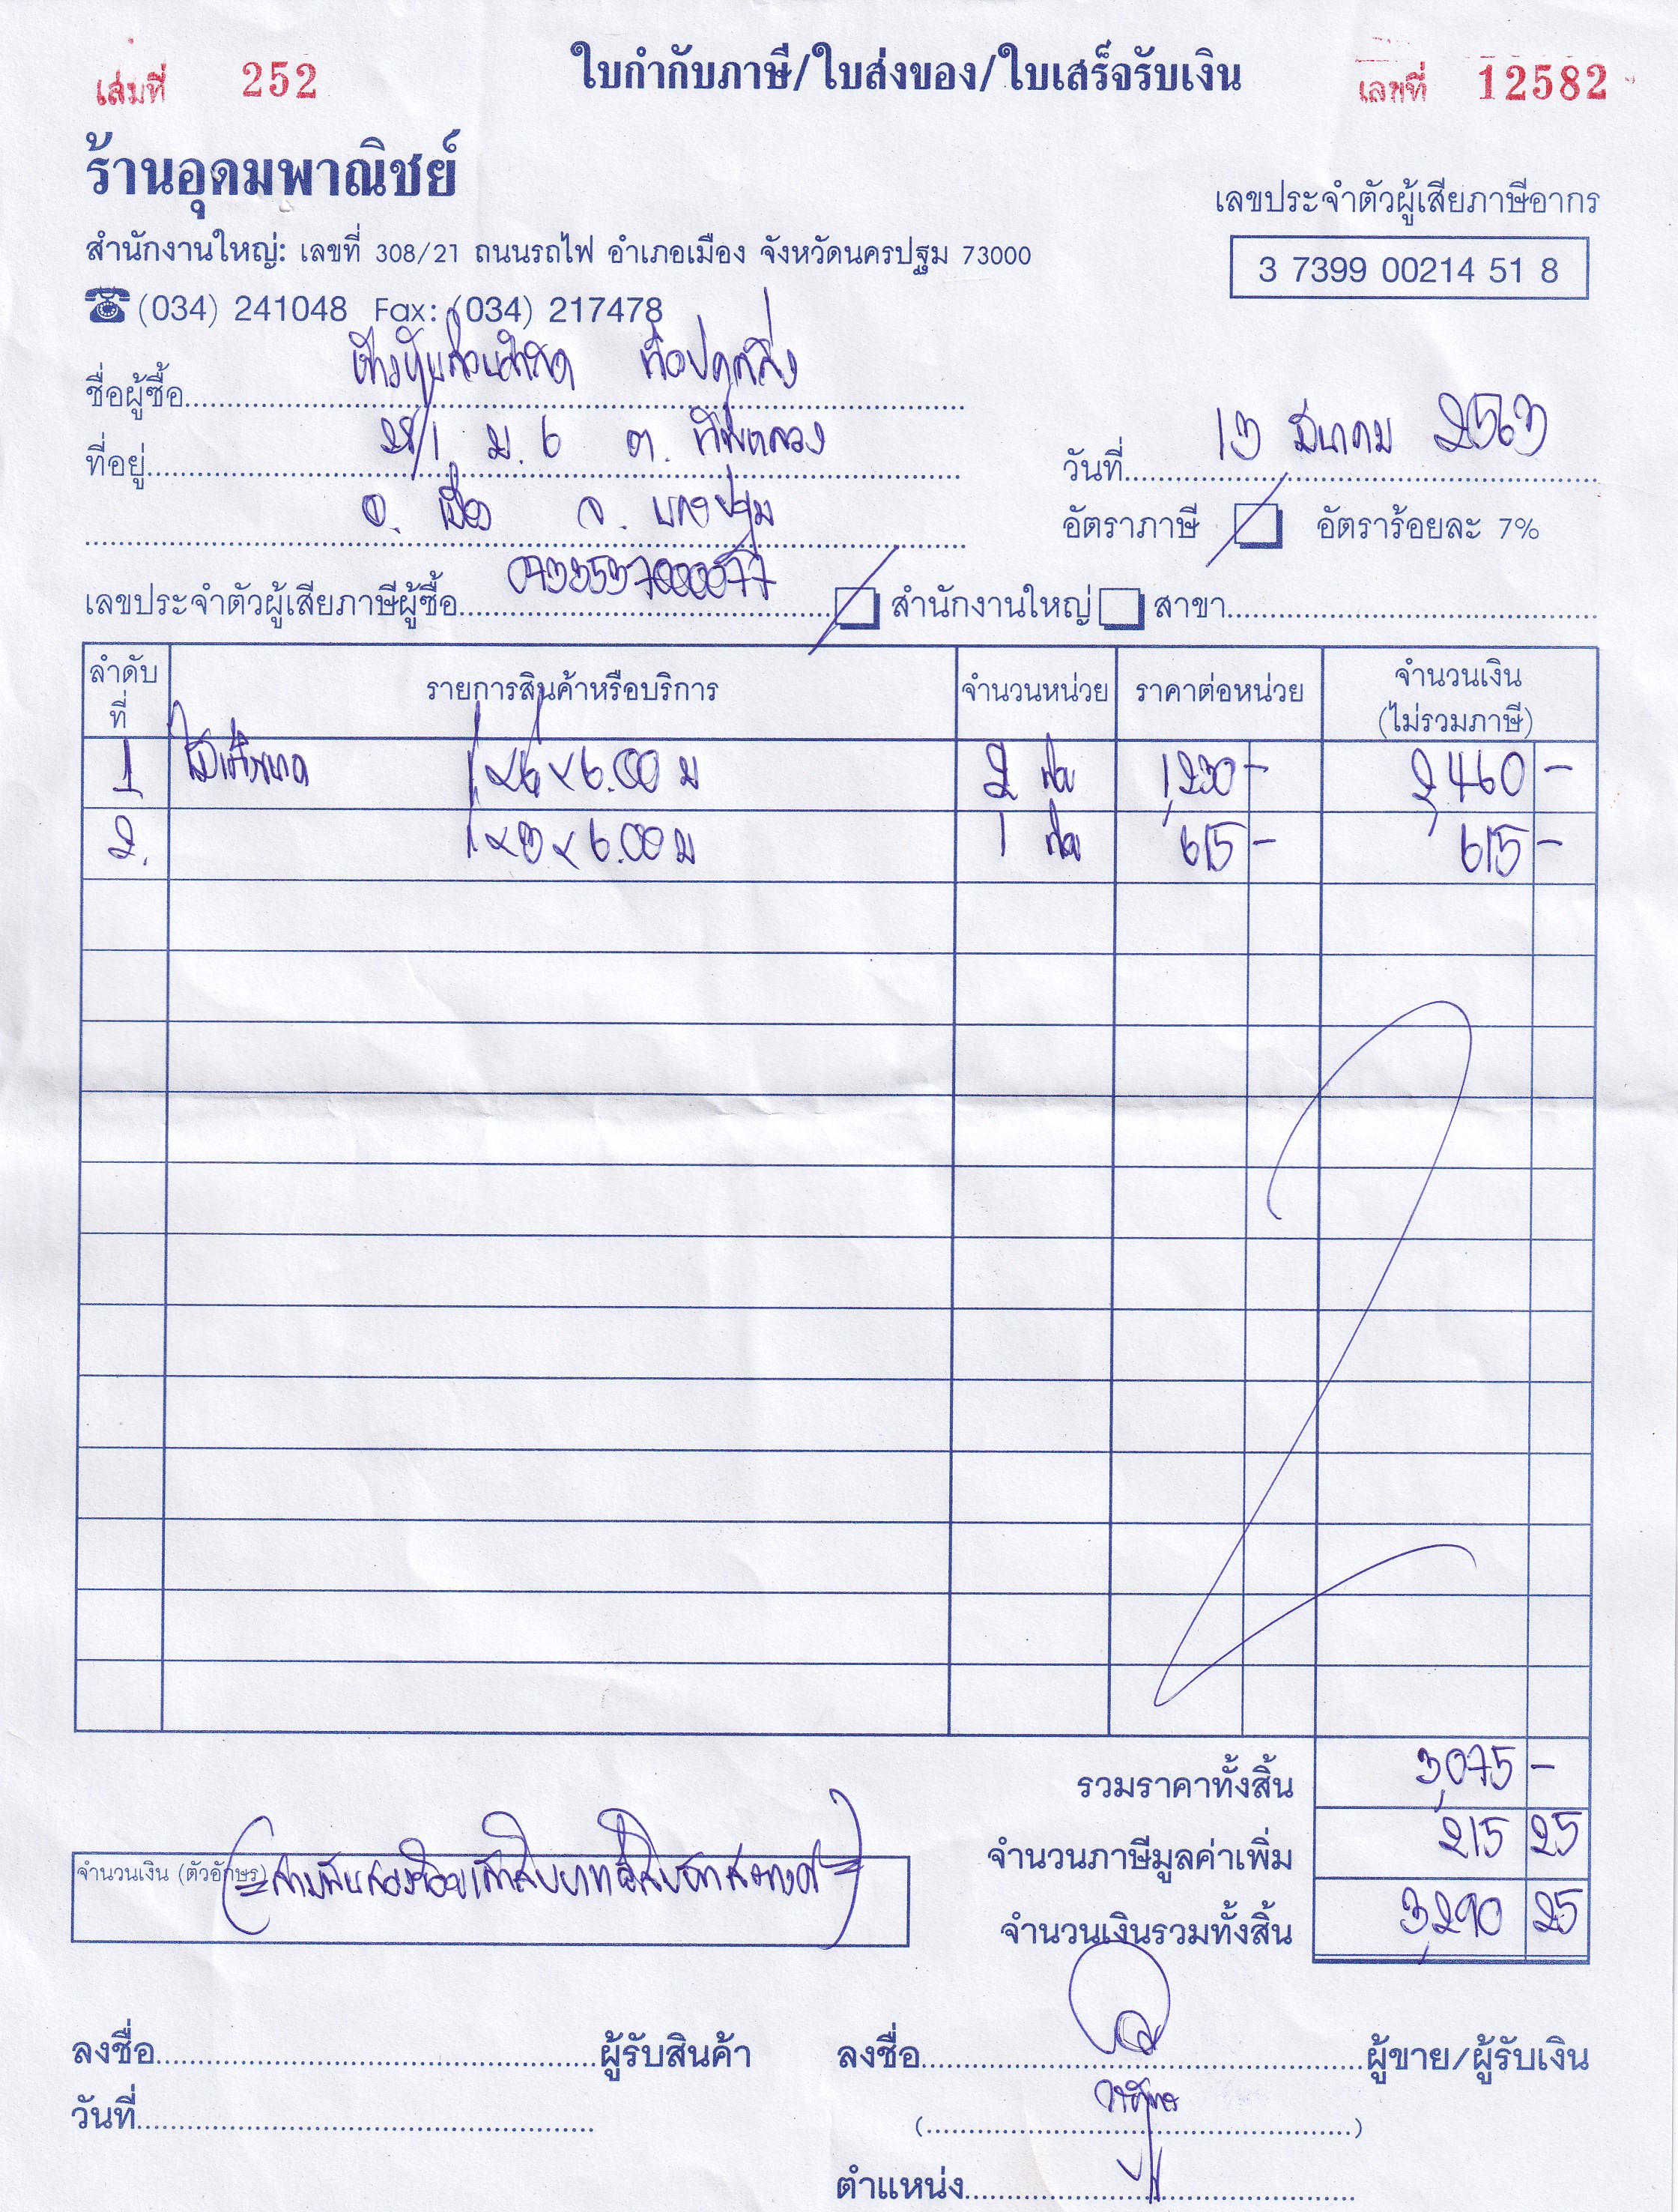 เล่มที่ 252
ใบกำกับภาษี/ใบส่งของ/ใบเสร็จรับเงิน
เลขที่ 12582
ร้านอุดมพาณิชย์
สำนักงานใหญ่: เลขที่ 308/21 ถนนรถไฟ อำเภอเมือง จังหวัดนครปฐม 73000
(034) 241048 Fax: (034) 217478
เลขประจำตัวผู้เสียภาษีอากร
3 7399 00214 51 8
ชื่อผู้ซื้อ ห้างหุ้นส่วนจำกัด
ที่อยู่ ม. 6 ต.
อ. เมือง จ. นครปฐม
วันที่ 13 มีนาคม 2563
อัตราภาษี อัตราร้อยละ 7%
เลขประจำตัวผู้เสียภาษีผู้ซื้อ 0733537000077 สำนักงานใหญ่ สาขา
ลำดับที่ รายการสินค้าหรือบริการ จำนวนหน่วย ราคาต่อหน่วย จำนวนเงิน (ไม่รวมภาษี)
1 1×6×6.00 ม 2 1,230 - 2,460 -
2. 1×3×6.00 ม 1 615 - 615 -
รวมราคาทั้งสิ้น 3,075 -
จำนวนภาษีมูลค่าเพิ่ม 215 25
จำนวนเงิน (ตัวอักษร) (=สามพันสองร้อยเก้าสิบบาทยี่สิบห้าสตางค์=)
จำนวนเงินรวมทั้งสิ้น 3,290 25
ลงชื่อ ผู้รับสินค้า
ลงชื่อ ผู้ขาย/ผู้รับเงิน
วันที่
( )
ตำแหน่ง